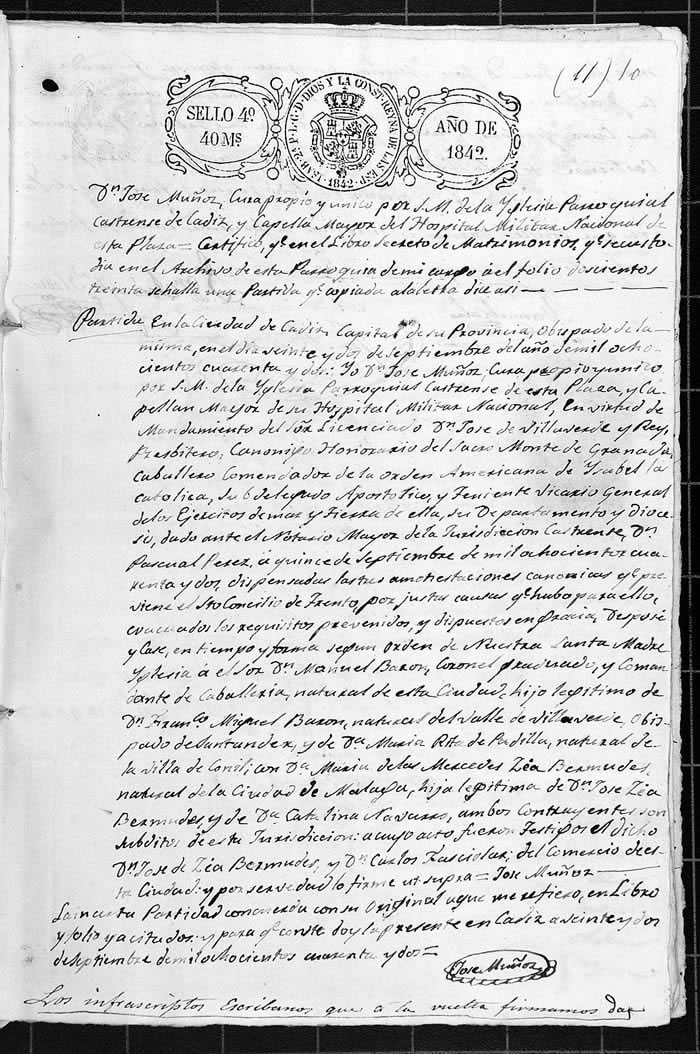 (11) 10
SELLO 4º
40 Ms
ISAB. 2ª P. L. G. D. DIOS Y LA CONST. REYNA DE LAS ESP.
1842
AÑO DE
1842.
Dn. Jose Muñoz, Cura propio y unico por S.M. de la Yglesia Parroquial
Castrense de Cadiz, y Capellan Mayor del Hospital Militar Nacional de
esta Plaza = Certifico, qe. en el Libro Secreto de Matrimonios, qe. se custo-
dia en el Archivo de esta Parroquia de mi cargo á el folio doscientos
treinta se halla una Partida qe. copiada ala letra dice asi
Partida En la Ciudad de Cadiz, Capital de su Provincia, Obispado de la
misma, en el dia veinte y dos de Septiembre del año de mil ocho-
cientos cuarenta y dos: Yo Dn. Jose Muñoz, Cura propio y unico
por S.M. de la Yglesia Parroquial Castrense de esta Plaza, y Ca-
pellan Mayor de su Hospital Militar Nacional, En virtud de
Mandamiento del Sor. Licenciado Dn. Jose de Villaverde y Rey,
Presbitero, Canonigo Honorario del Sacro Monte de Granada,
Caballero Comendador de la orden Americana de Ysabel la
Catolica, Subdelegado Apostolico, y Teniente Vicario General
de los Ejercitos de mar y tierra de ella, su Departamento y Dioce-
sis, dado ante el Notario Mayor de la Jurisdiccion Castrense, Dn.
Pascual Perez, á quince de Septiembre de mil ochocientos cua-
renta y dos, dispensadas las tres amonestaciones canonicas qe. pre-
viene el Sto. Concilio de Trento, por justas causas qe. hubo para ello,
evacuados los requisitos prevenidos, y dispuestos en gracia, Desposé
y Casé, en tiempo y forma segun orden de Nuestra Santa Madre
Yglesia á el Sor. Dn. Manuel Baron, Coronel graduado, y Coman-
dante de Caballeria, natural de esta Ciudad, hijo legitimo de
Dn. Franco. Miguel Baron, natural del Valle de Villaverde, Obis-
pado de Santander, y de Da. Maria Rita de Padilla, natural de
la Villa de Conil; con Da. Maria de las Mercedes Zéa Bermudes,
natural de la Ciudad de Malaga, hija legitima de Dn. Jose Zéa
Bermudes, y de Da. Catalina Navarro, ambos Contrayentes son
subditos de esta Jurisdiccion: a cuyo acto fueron Testigos el dicho
Dn. Jose de Zéa Bermudes, y Dn. Carlos Fasciolas, del Comercio de es-
ta Ciudad: y por ser verdad lo firmé ut supra = Jose Muñoz
Partida concuerda con su Original a que me refiero, en Libro
y folio ya citados: y para qe. conste doy la presente en Cadiz a veinte y dos
de Septiembre de mil ochocientos cuarenta y dos =
Jose Muñoz
Los infrascriptos Escribanos que a la vuelta firmamos da